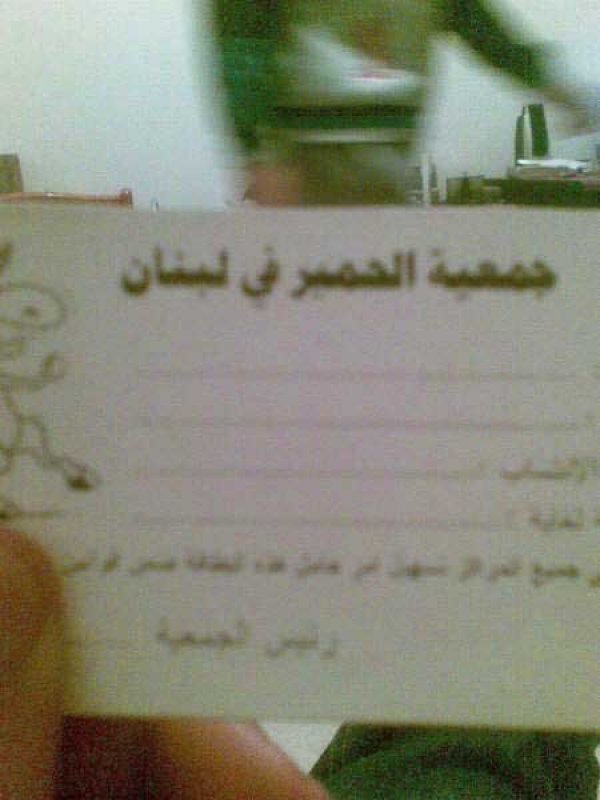 جمعية الحمير في لبنان
الإنتساب :
لغاية :
جميع المراكز تسهيل أمر حامل هذه البطاقة ضمن
رئيس الجمعية